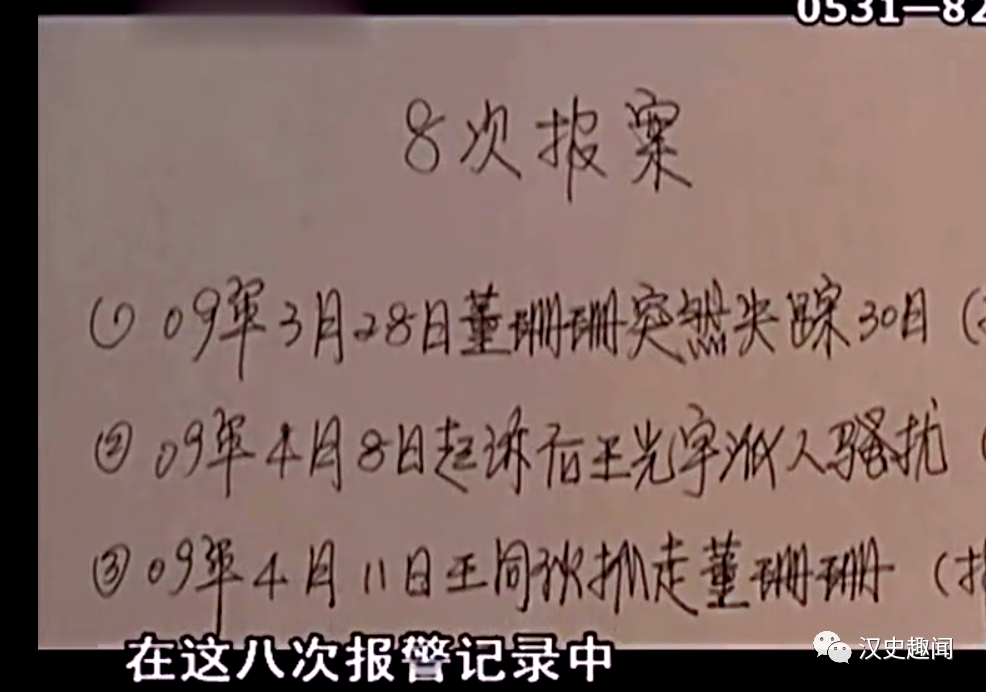 0531—82
8次报案
(1) 09年3月28日董珊珊突然失踪30日(
② 09年4月8日起诉后王光宇派人骚扰(
③ 09年4月11日王同伙抓走董珊珊(
在这八次报警记录中
汉史趣闻